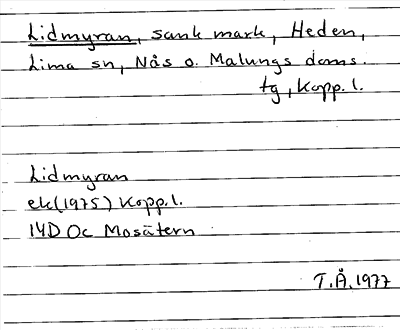 Lidmyran, sank mark, Heden,
Lima sn, Nås o. Malungs doms.
tg, Kopp. l.
Lidmyran
ek(1975) Kopp. l.
14D Oc Mosätern
T.Å. 1977